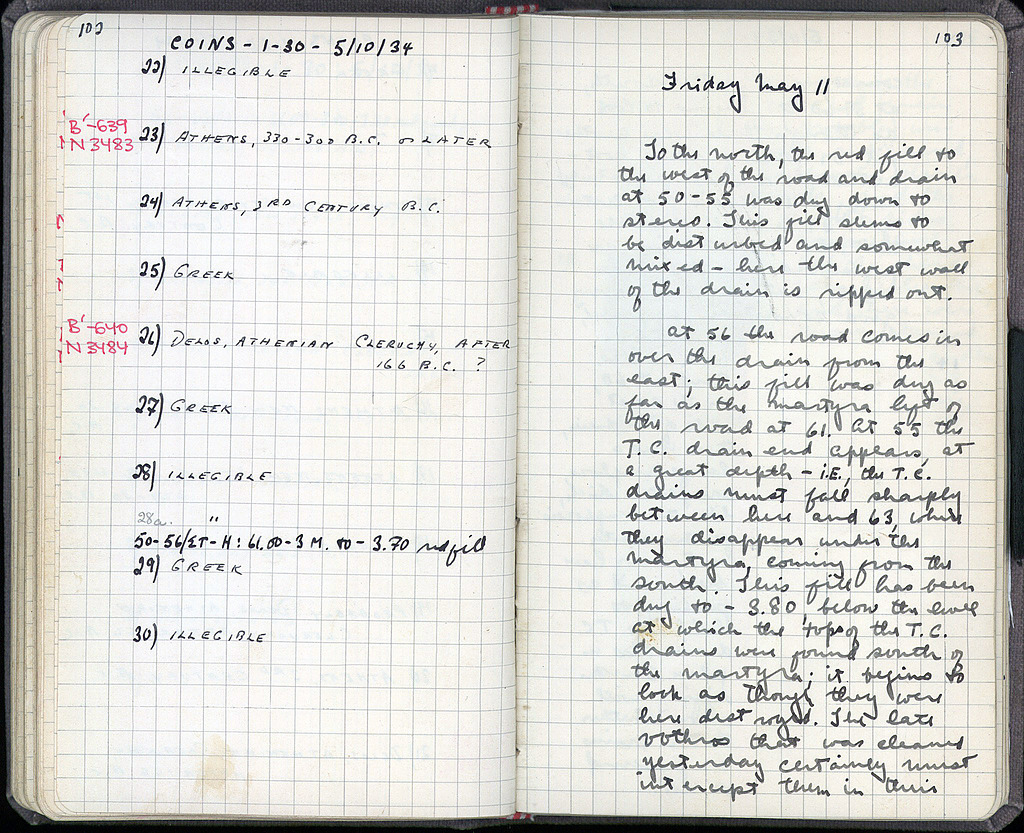 103
COINS - 1-30 - 5/10/34
22) ILLEGIBLE
B'-639
N 3483
23) ATHENS, 330-300 B.C. or LATER
24) ATHENS, 3RD CENTURY B.C.
25) GREEK
B'-640
N 3484
26) DELOS, ATHENIAN CLERUCHY, AFTER
166 B.C. ?
27) GREEK
28) ILLEGIBLE
28a. "
50-56/ΣΤ-Η: 61.00-3 M. to -3.70 red fill
29) GREEK
30) ILLEGIBLE
103
Friday May 11
To the north, the red fill to
the west of the road and drain
at 50-55 was dug down to
stereo. This fill seems to
be disturbed and somewhat
mixed - here the west wall
of the drain is ripped out.
At 56 the road comes in
over the drain from the
east; this fill was dug as
far as the martyra left of
the road at 61. At 55 the
T.C. drain end appears, at
a great depth - i.E., the T.C.
drains must fall sharply
between here and 63, where
they disappear under the
martyra, coming from the
south. This fill has been
dug to - 3.80, below the level
at which the tops of the T.C.
drains were found south of
the martyra; it begins to
look as though they were
here destroyed. The late
bothros that was cleaned
yesterday certainly must
intercept them in this